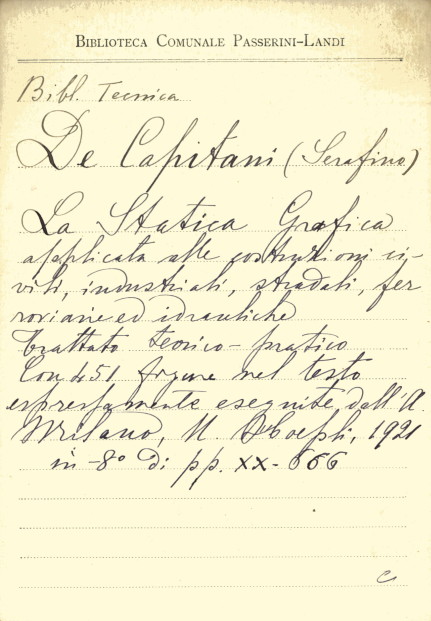 BIBLIOTECA COMUNALE PASSERINI-LANDI
Bibl. Tecnica
De Capitani (Serafino)
La Statica Grafica
applicata alle costruzioni ci-
vili, industriali, stradali, fer
roviarie ed idrauliche
Trattato teorico-pratico
Con 451 figure nel testo
espressamente eseguite dall'A.
Milano, U. Hoepli, 1921
in-8° di pp. XX-666
C